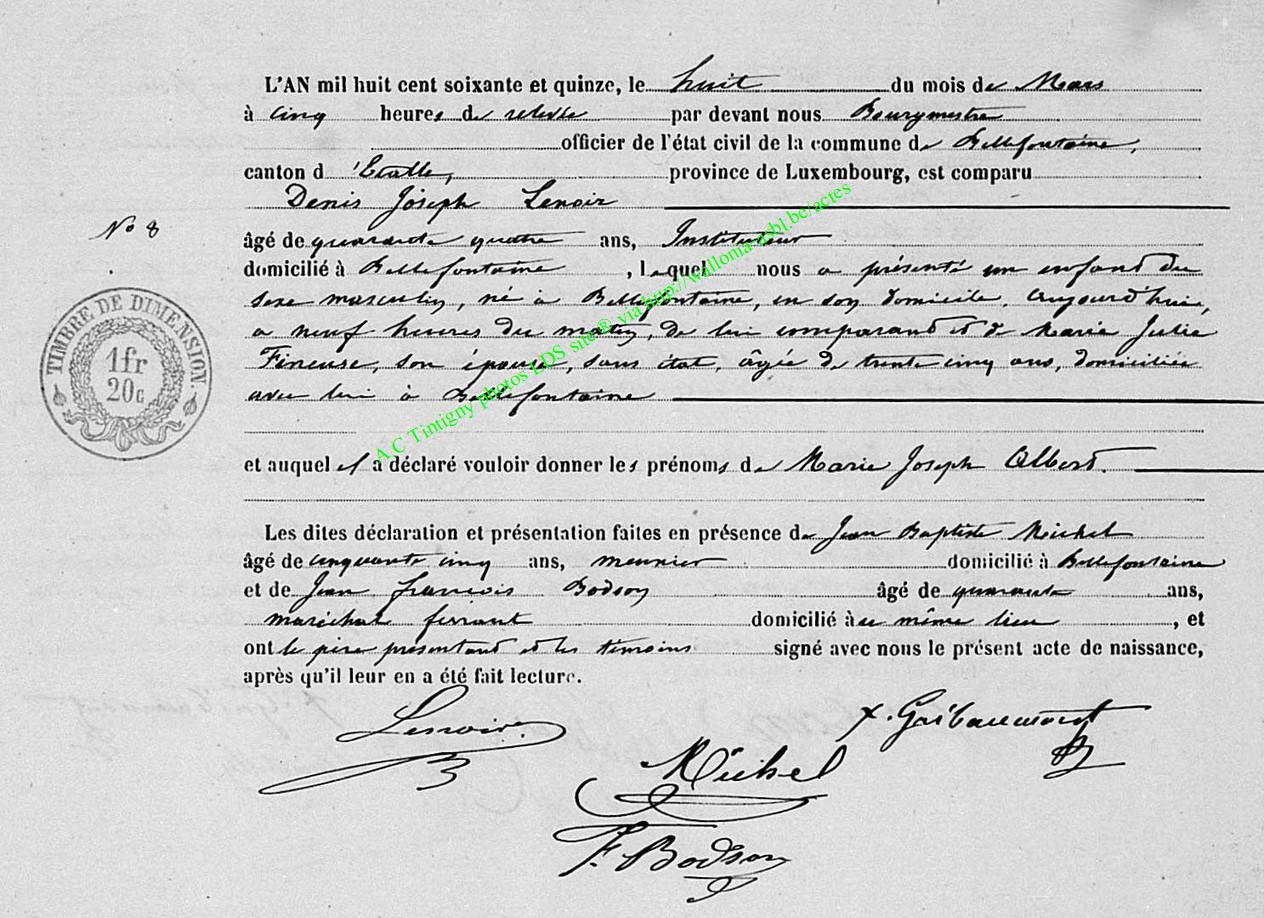 L'AN mil huit cent soixante et quinze, le huit du mois de Mars
à cinq heures de relevée par devant nous Bourgmestre
officier de l'état civil de la commune de Bellefontaine,
canton d'Etalle, province de Luxembourg, est comparu
Denis Joseph Lenoir
No 8
âgé de quarante quatre ans, Instituteur
domicilié à Bellefontaine, lequel nous a présenté un enfant du
sexe masculin, né à Bellefontaine, en son domicile, aujourd'hui,
a neuf heures du matin, de lui comparant et de Marie Julie
Fineuse, son épouse, sans état, âgée de trente cinq ans, domiciliée
avec lui à Bellefontaine
TIMBRE DE DIMENSION.
1 fr
20 c
A.C Tintigny photos LDS site® via http://walloma-asbl.be/actes
et auquel il a déclaré vouloir donner les prénoms de Marie Joseph Albert.
Les dites déclaration et présentation faites en présence de Jean Baptiste Michel
âgé de cinquante cinq ans, meunier domicilié à Bellefontaine
et de Jean François Bodson âgé de quarante ans,
maréchal ferrant domicilié à u même lieu, et
ont le père présentant et les témoins signé avec nous le présent acte de naissance,
après qu'il leur en a été fait lecture.
Lenoir
Michel
F. Bodson